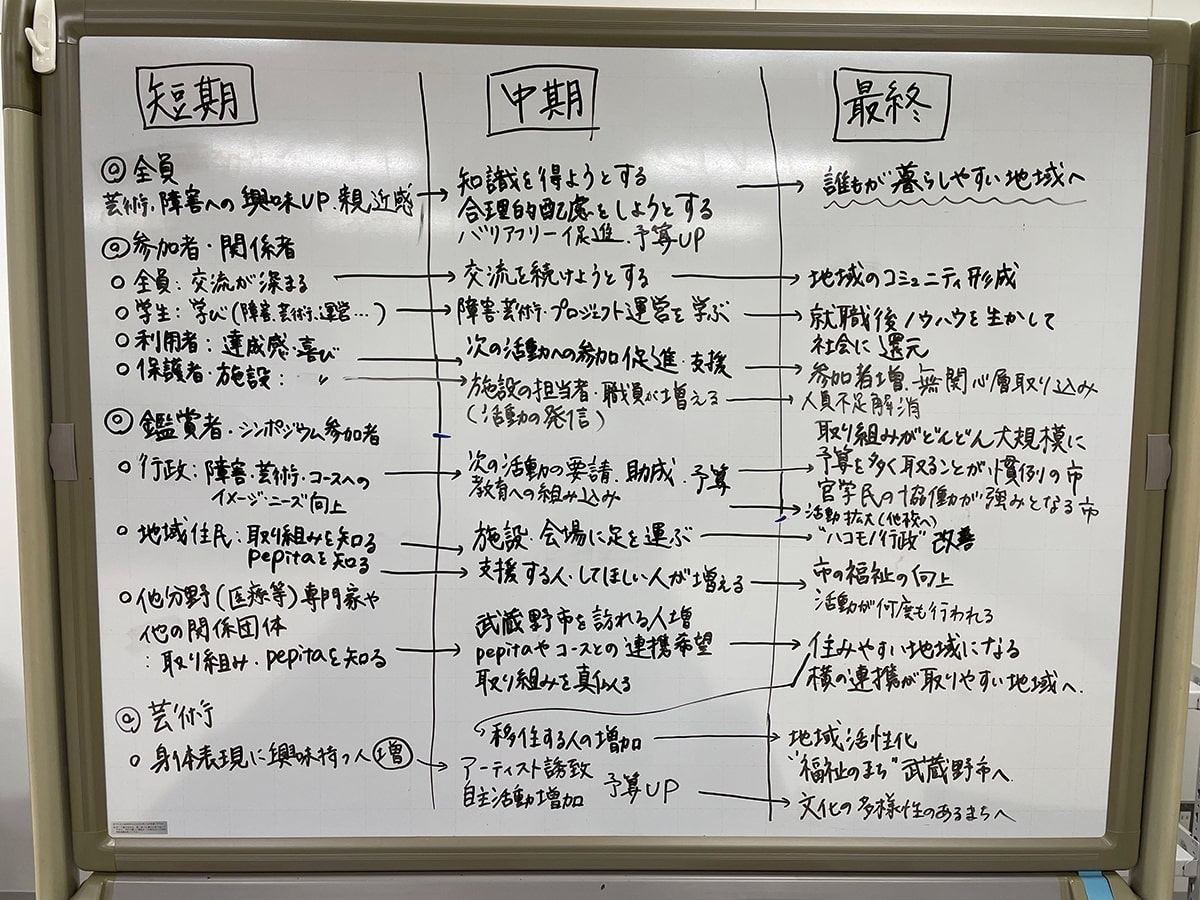 短期
◎全員
芸術・障害への興味UP・親近感
◎参加者・関係者
○全員：交流が深まる
○学生：学び(障害、芸術、運営…)
○利用者：達成感・喜び
○保護者・施設： 〃
◎鑑賞者・シンポジウム参加者
○行政：障害・芸術・コースへの
イメージ・ニーズ向上
○地域住民：取り組みを知る
pepitaを知る
○他分野(医療等)専門家や
他の関係団体
：取り組み・pepitaを知る
◎芸術
○身体表現に興味持つ人増
中期
知識を得ようとする
合理的配慮をしようとする
バリアフリー促進、予算UP
交流を続けようとする
障害・芸術・プロジェクト運営を学ぶ
次の活動への参加促進・支援
施設の担当者・職員が増える
(活動の発信)
次の活動の要請、助成、予算
教育への組み込み
施設・会場に足を運ぶ
支援する人・してほしい人が増える
武蔵野市を訪れる人増
pepitaやコースとの連携希望
取り組みを真似る
移住する人の増加
アーティスト誘致
自主活動増加 予算UP
最終
誰もが暮らしやすい地域へ
地域のコミュニティ形成
就職後ノウハウを生かして
社会に還元
参加者増・無関心層取り込み
人員不足解消
取り組みがどんどん大規模に
予算を多く取ることが慣例の市
官学民の協働が強みとなる市
活動拡大(他校へ)
"ハコモノ行政"改善
市の福祉の向上
活動が何度も行われる
住みやすい地域になる
横の連携が取りやすい地域へ.
地域活性化
"福祉のまち"武蔵野市へ
文化の多様性のあるまちへ